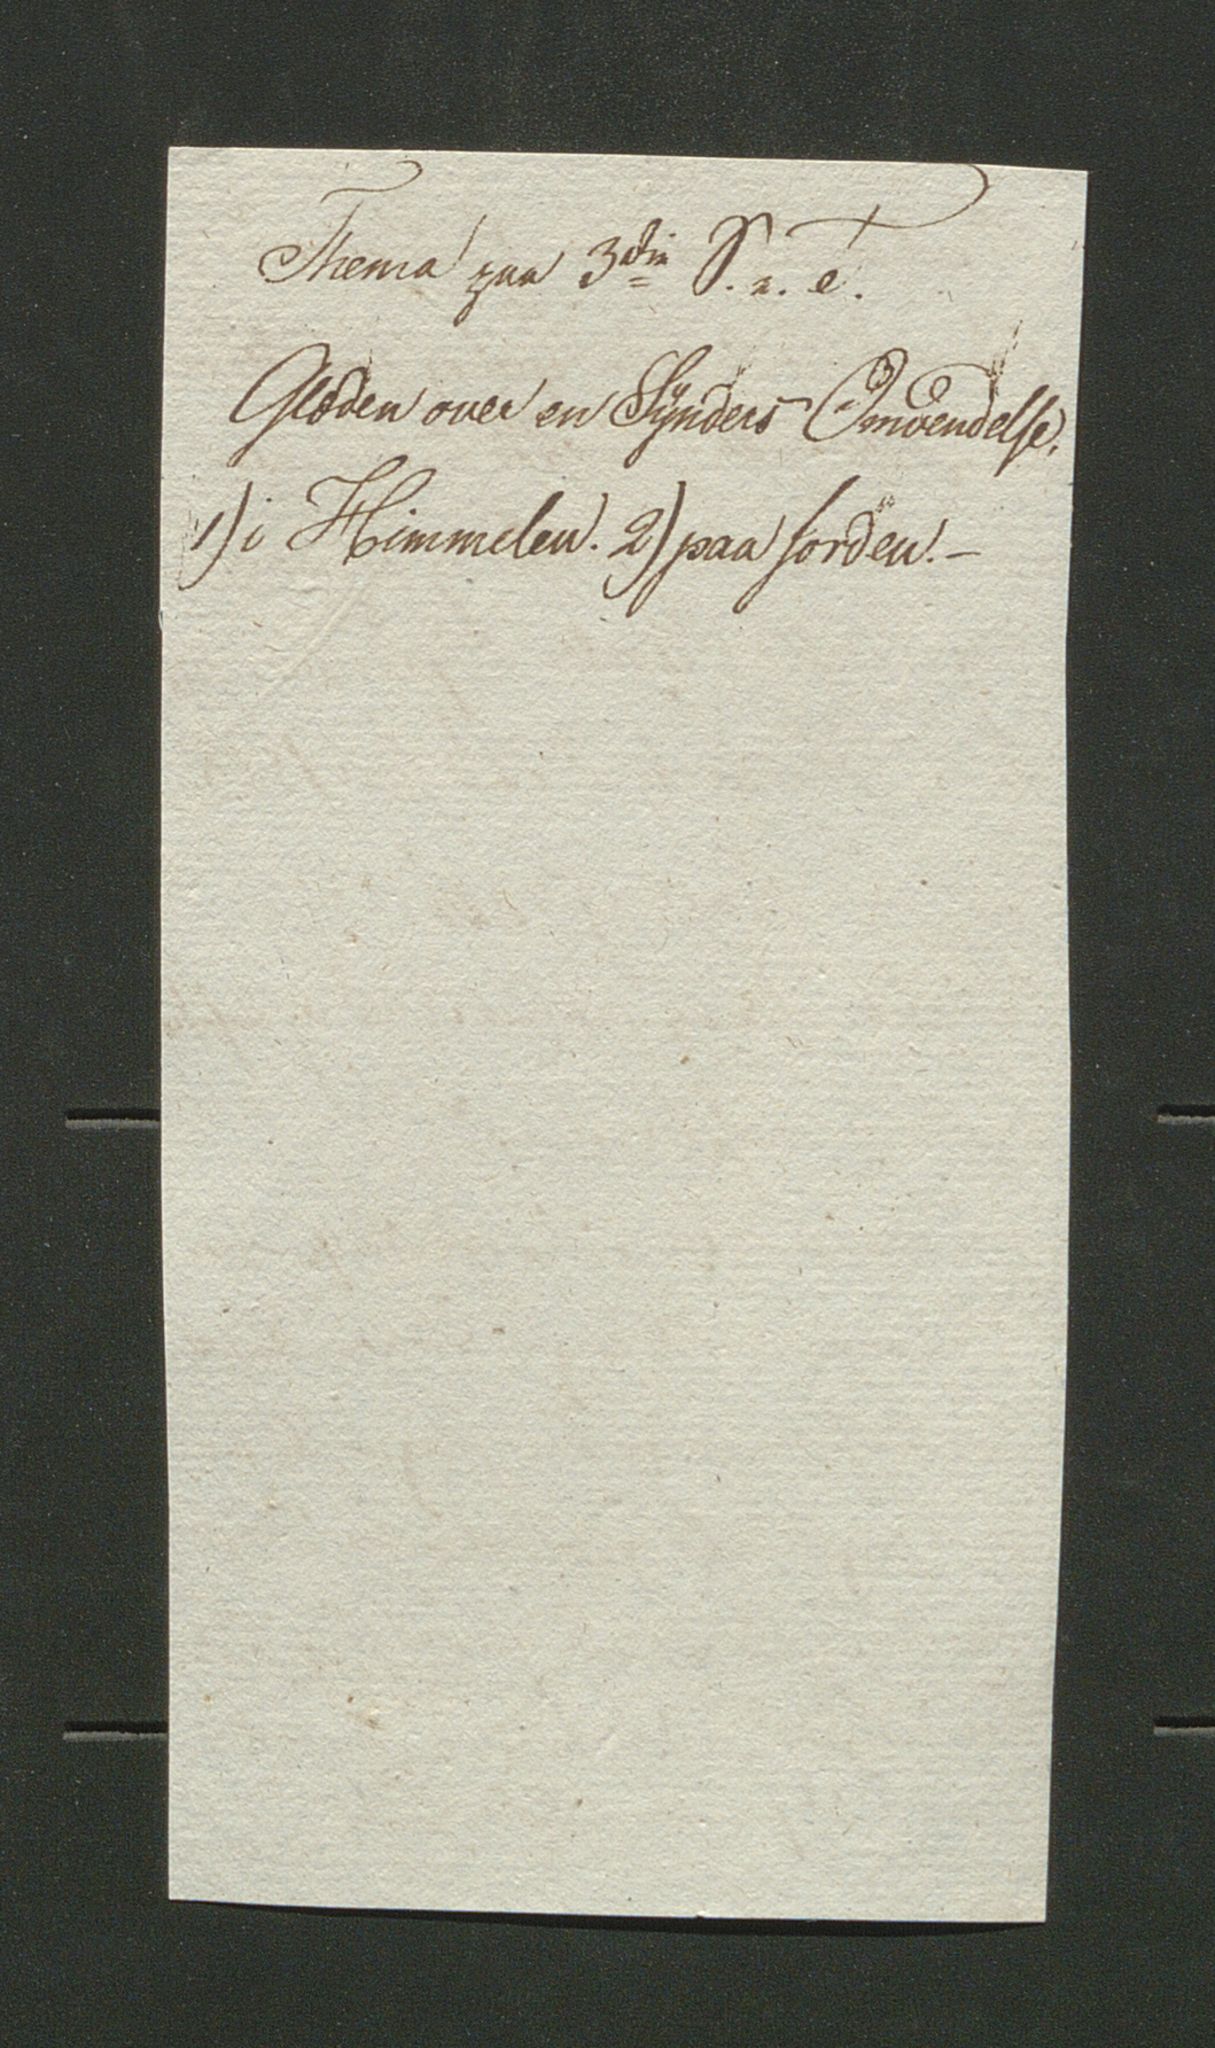 Thema paa 3die S. e. T.
Glæden over en Synders Omvendelse.
1) i Himmelen. 2) paa Jorden. –